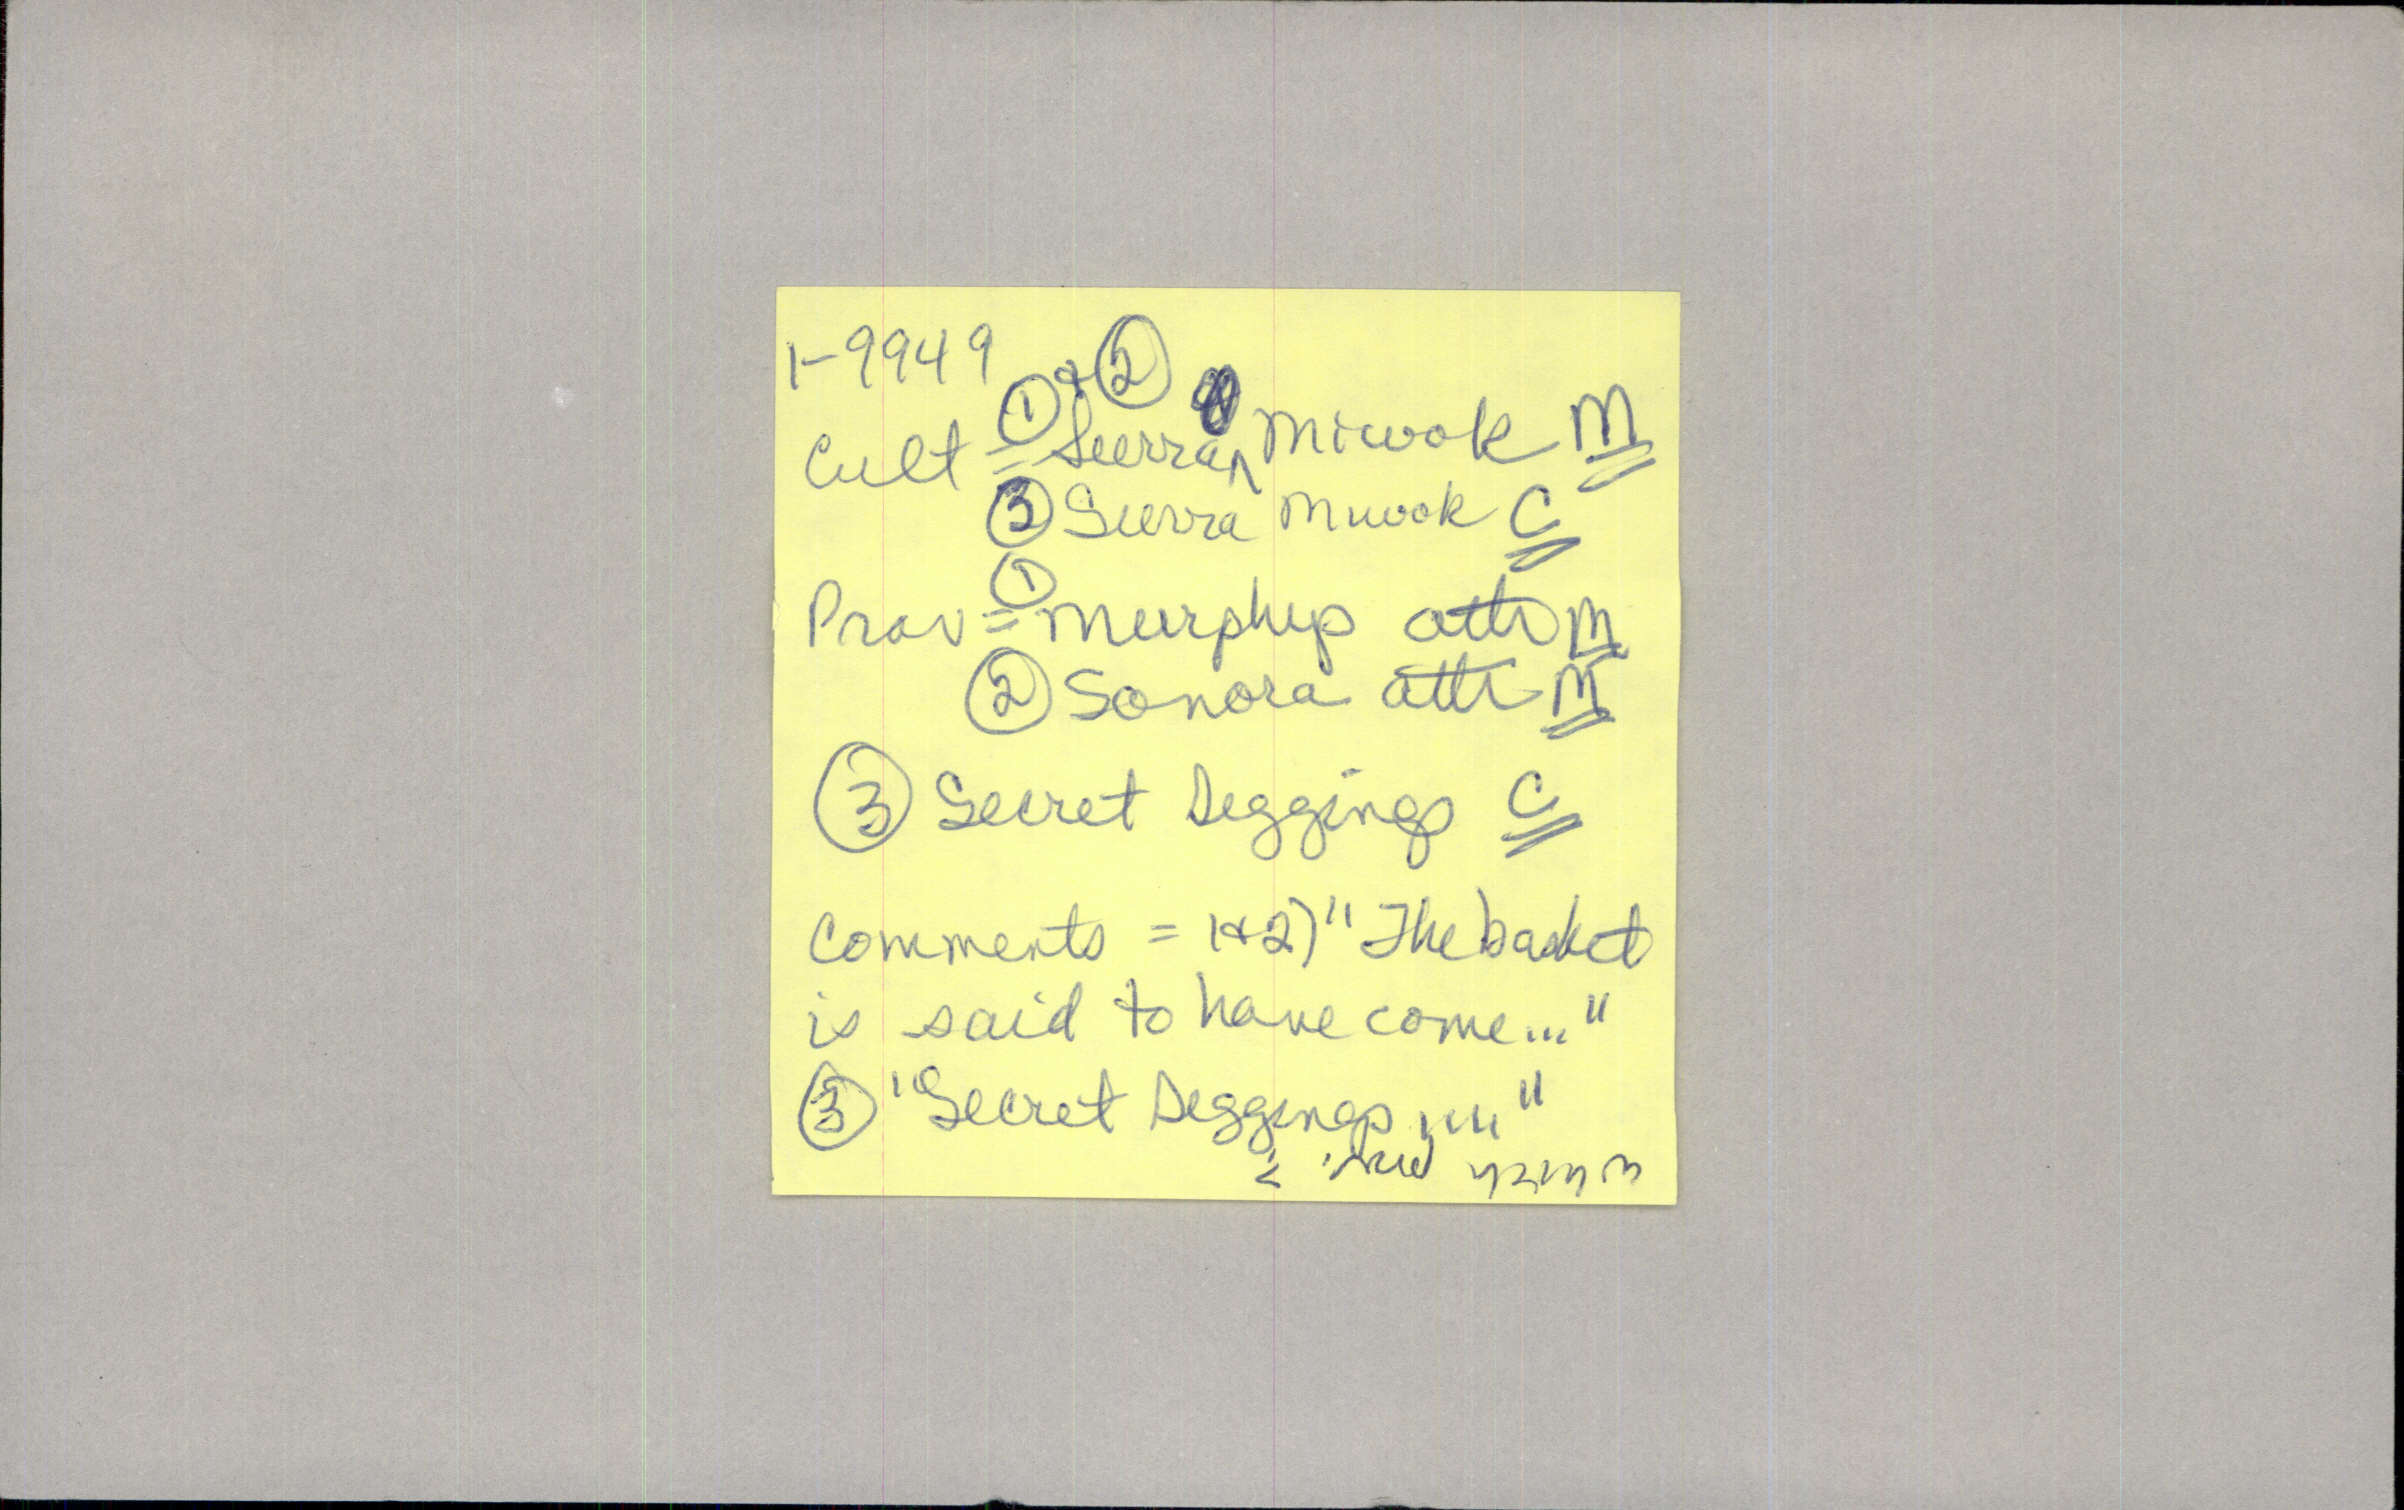 1-9949
Cult = ① & ② Sierra Miwok M
③ Sierra Miwok C
Prov = ① Murphys attr M
② Sonora attr M
③ Secret Diggings C
Comments = 1&2) "The basket
is said to have come..."
③ "Secret Diggings ...."